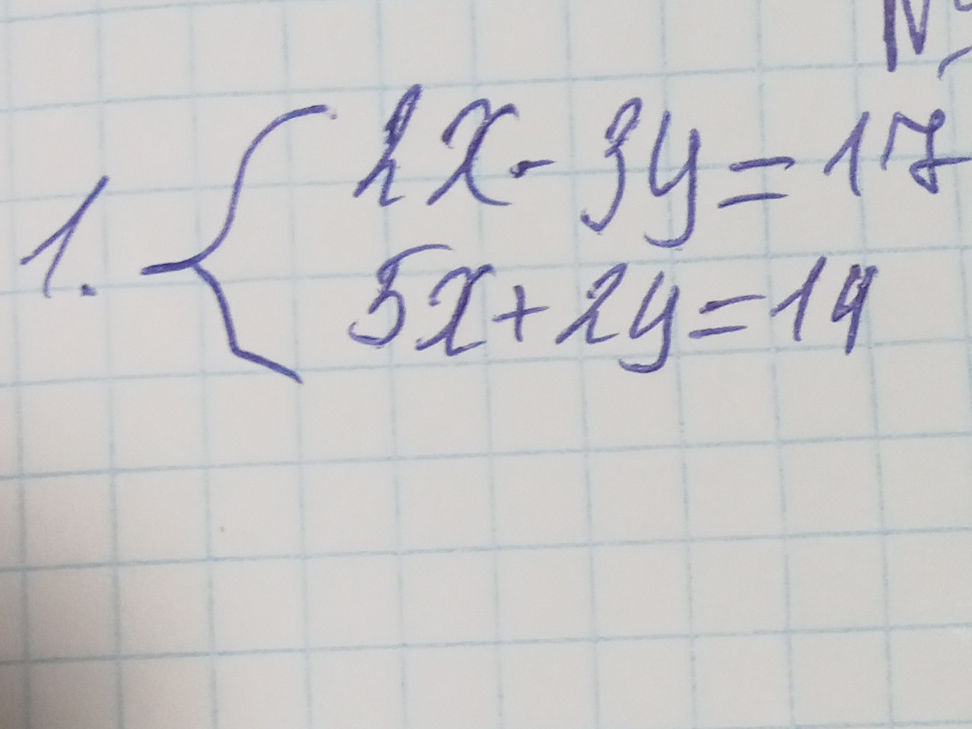 1. { 2x - 3y = 17
5x + 2y = 14